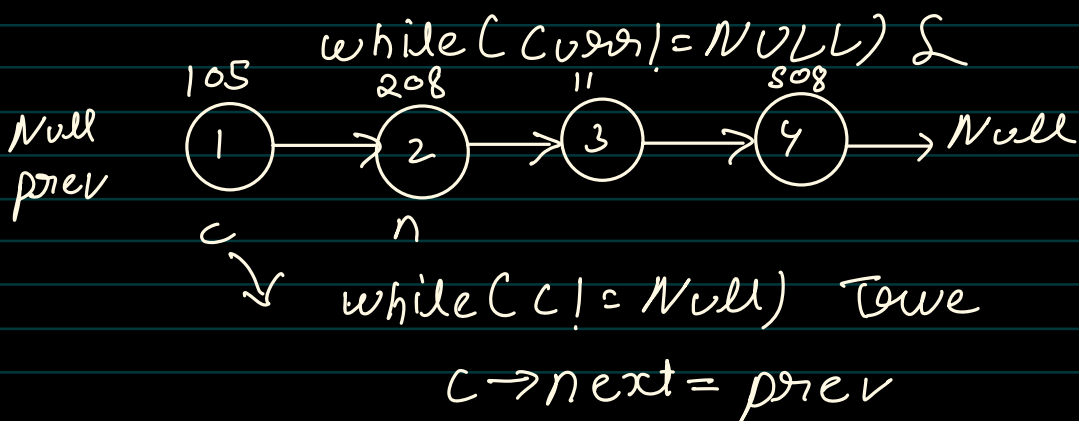 while(Curr!=NULL){
105 208 11 508
Null 1 2 3 4 Null
prev
c n
while(c!=Null) True
c→next=prev